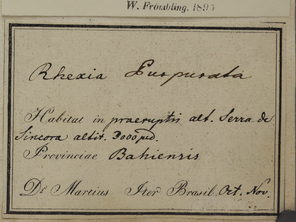 W. Frömbling. 1895
Rhexia Purpurata
Habitat in praeruptis alt. Serra de
Sincora altit. 3000 pd.
Provinciae Bahiensis
Dr Martius Iter Brasil. Oct. Nov.